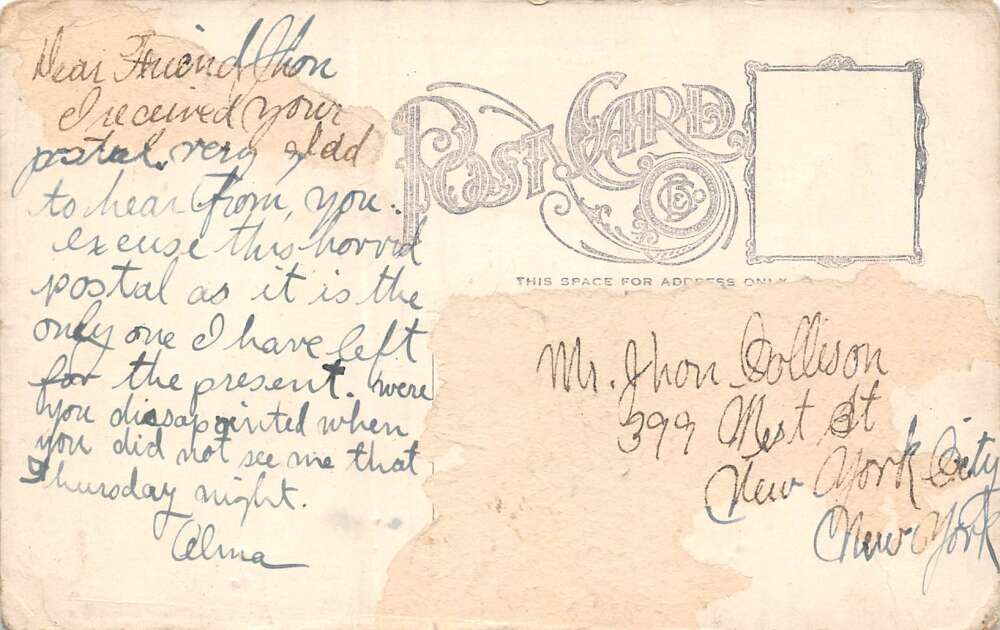 Dear Friend Jhon
I received your
postal. very glad
to hear from, you.
excuse this horrid
postal as it is the
only one I have left
for the present. were
you dissapointed when
you did not see me that
Thursday night.
Alma
POST CARD
THIS SPACE FOR ADDRESS ONLY
Mr. Jhon Collison
399 West St
New York City
New York